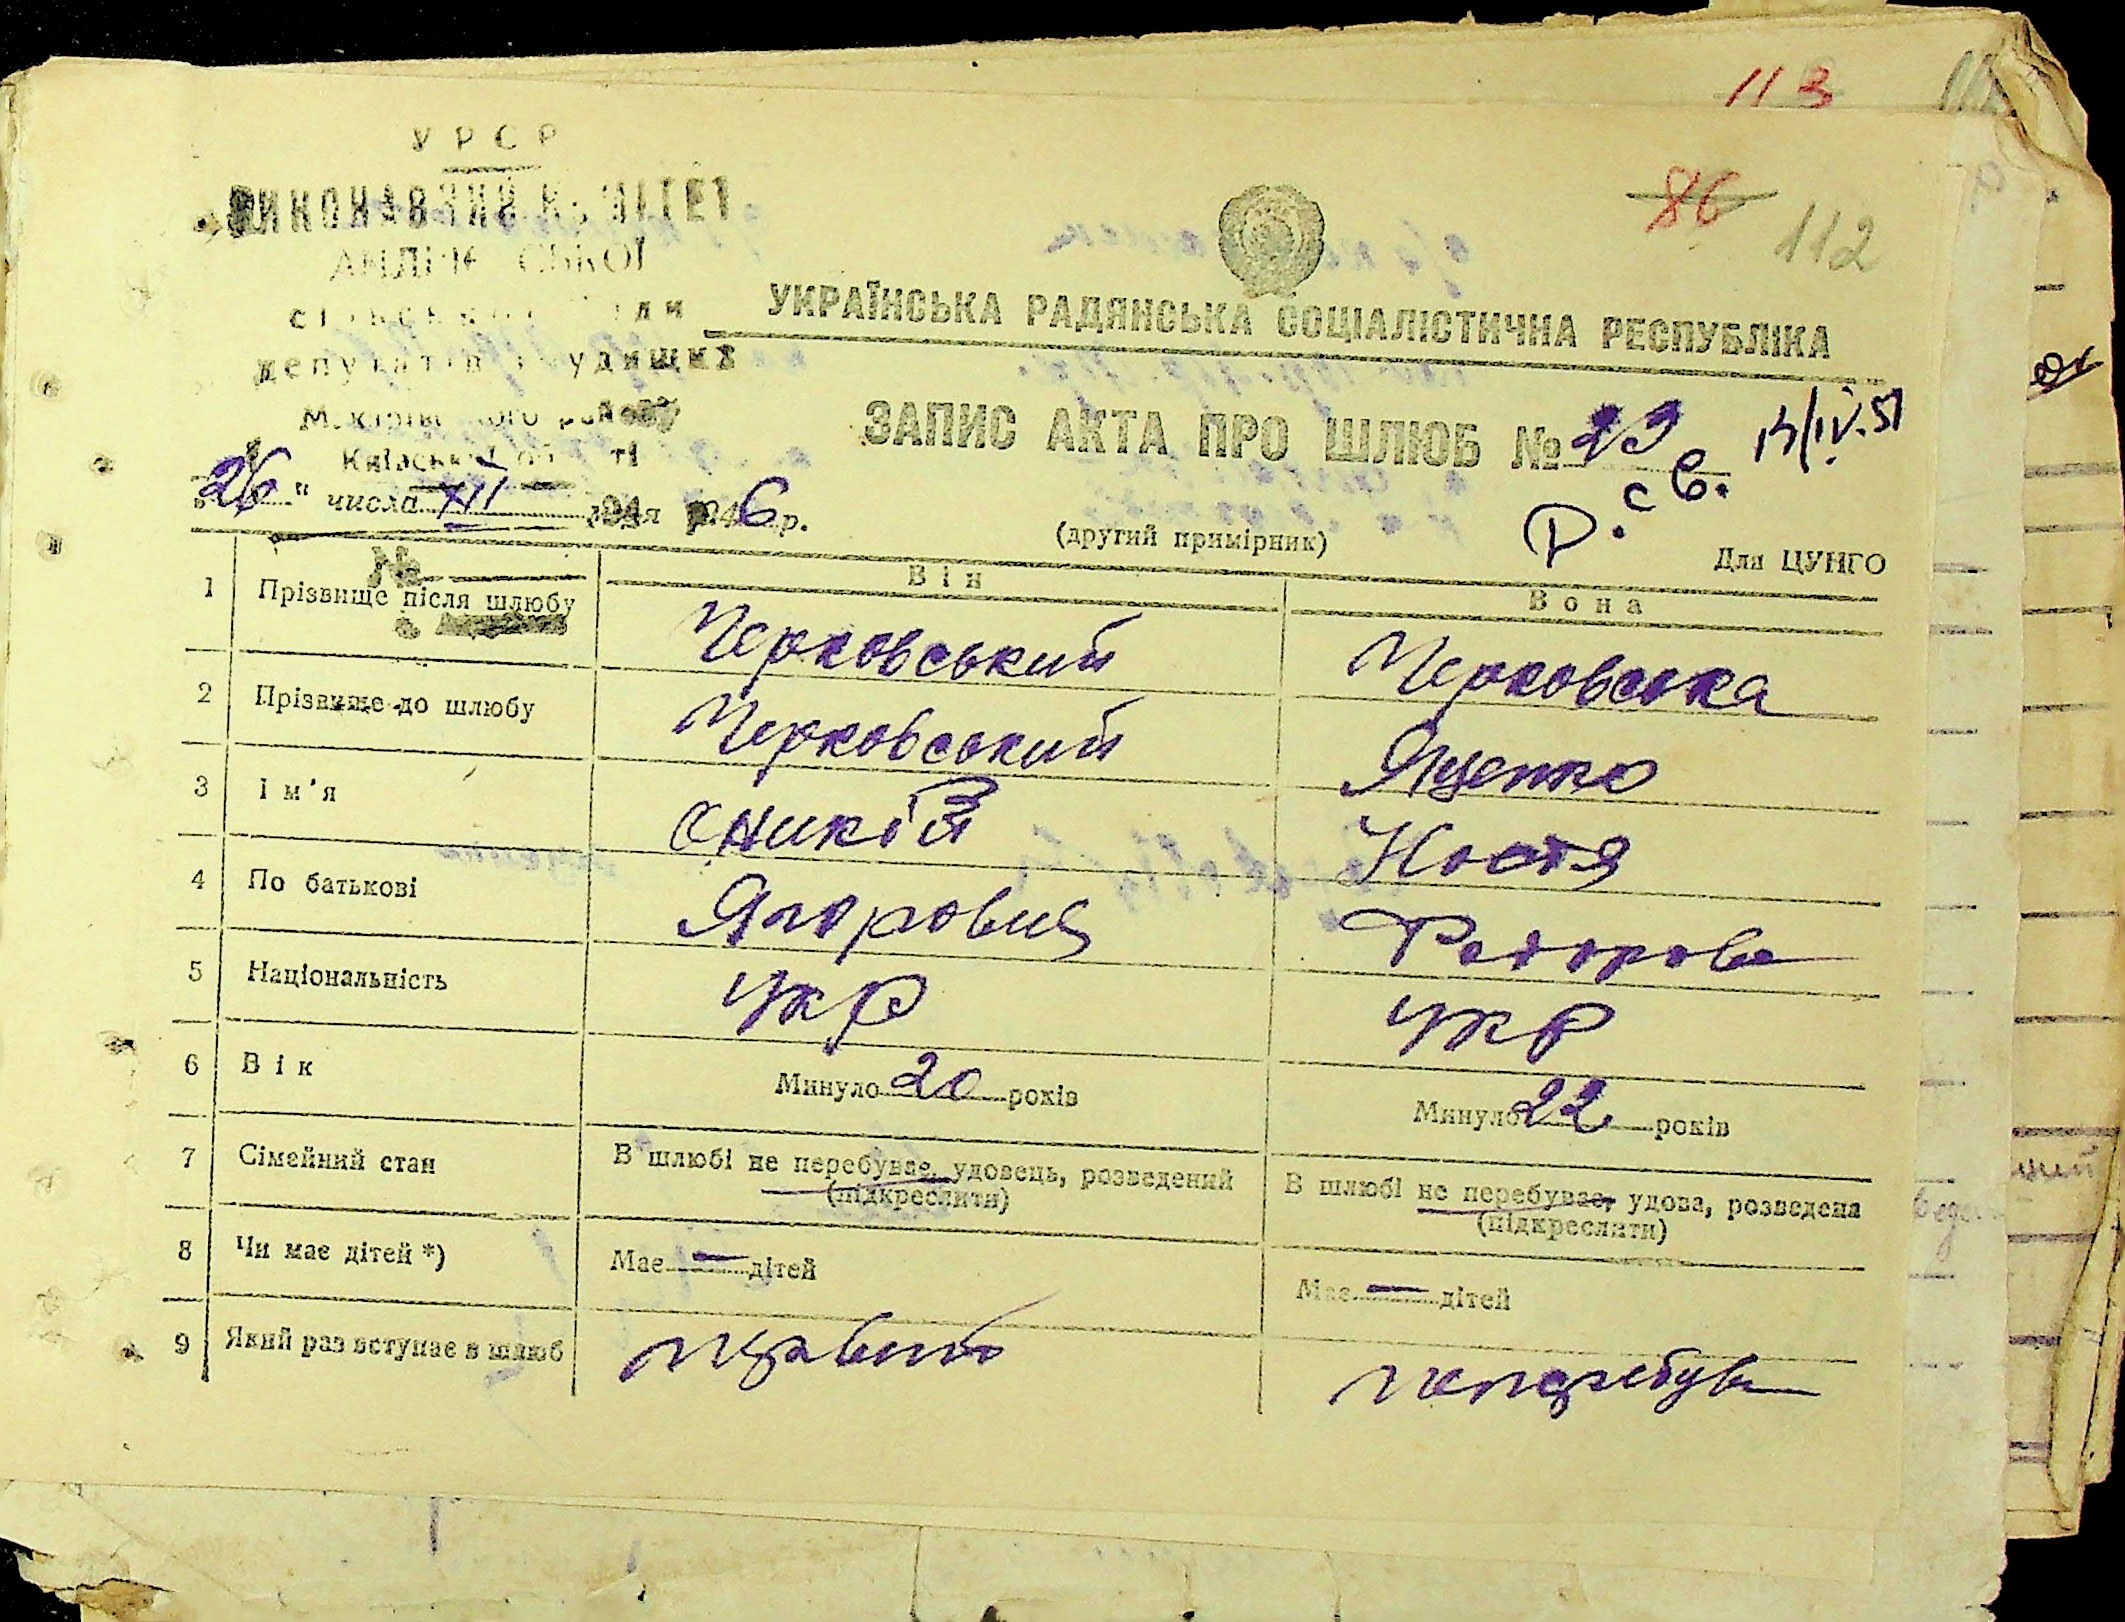 113
86 112
УРСР
ВИКОНАВЧИЙ КОМІТЕТ
АНДРІЇВСЬКОЇ
сільської ради
депутатів трудящих
Макарівського району
Київської області
УКРАЇНСЬКА РАДЯНСЬКА СОЦІАЛІСТИЧНА РЕСПУБЛІКА
ЗАПИС АКТА ПРО ШЛЮБ № 23
14/IV.51
Р. с В.
"26" числа XII 1946 р.
(другий примірник)
Для ЦУНГО
№
Він Вона
1 Прізвище після шлюбу Черковський Черковська
2 Прізвище до шлюбу Черковський Яценко
3 Ім'я Оникій Настя
4 По батькові Ягорович Федоровн
5 Національність Укр Укр
6 Вік Минуло 20 років Минуло 22 років
7 Сімейний стан В шлюбі не перебуває, удовець, розведений (підкреслити) В шлюбі не перебуває, удова, розведена (підкреслити)
8 Чи має дітей *) Має — дітей Має — дітей
9 Який раз вступає в шлюб первий неперебув